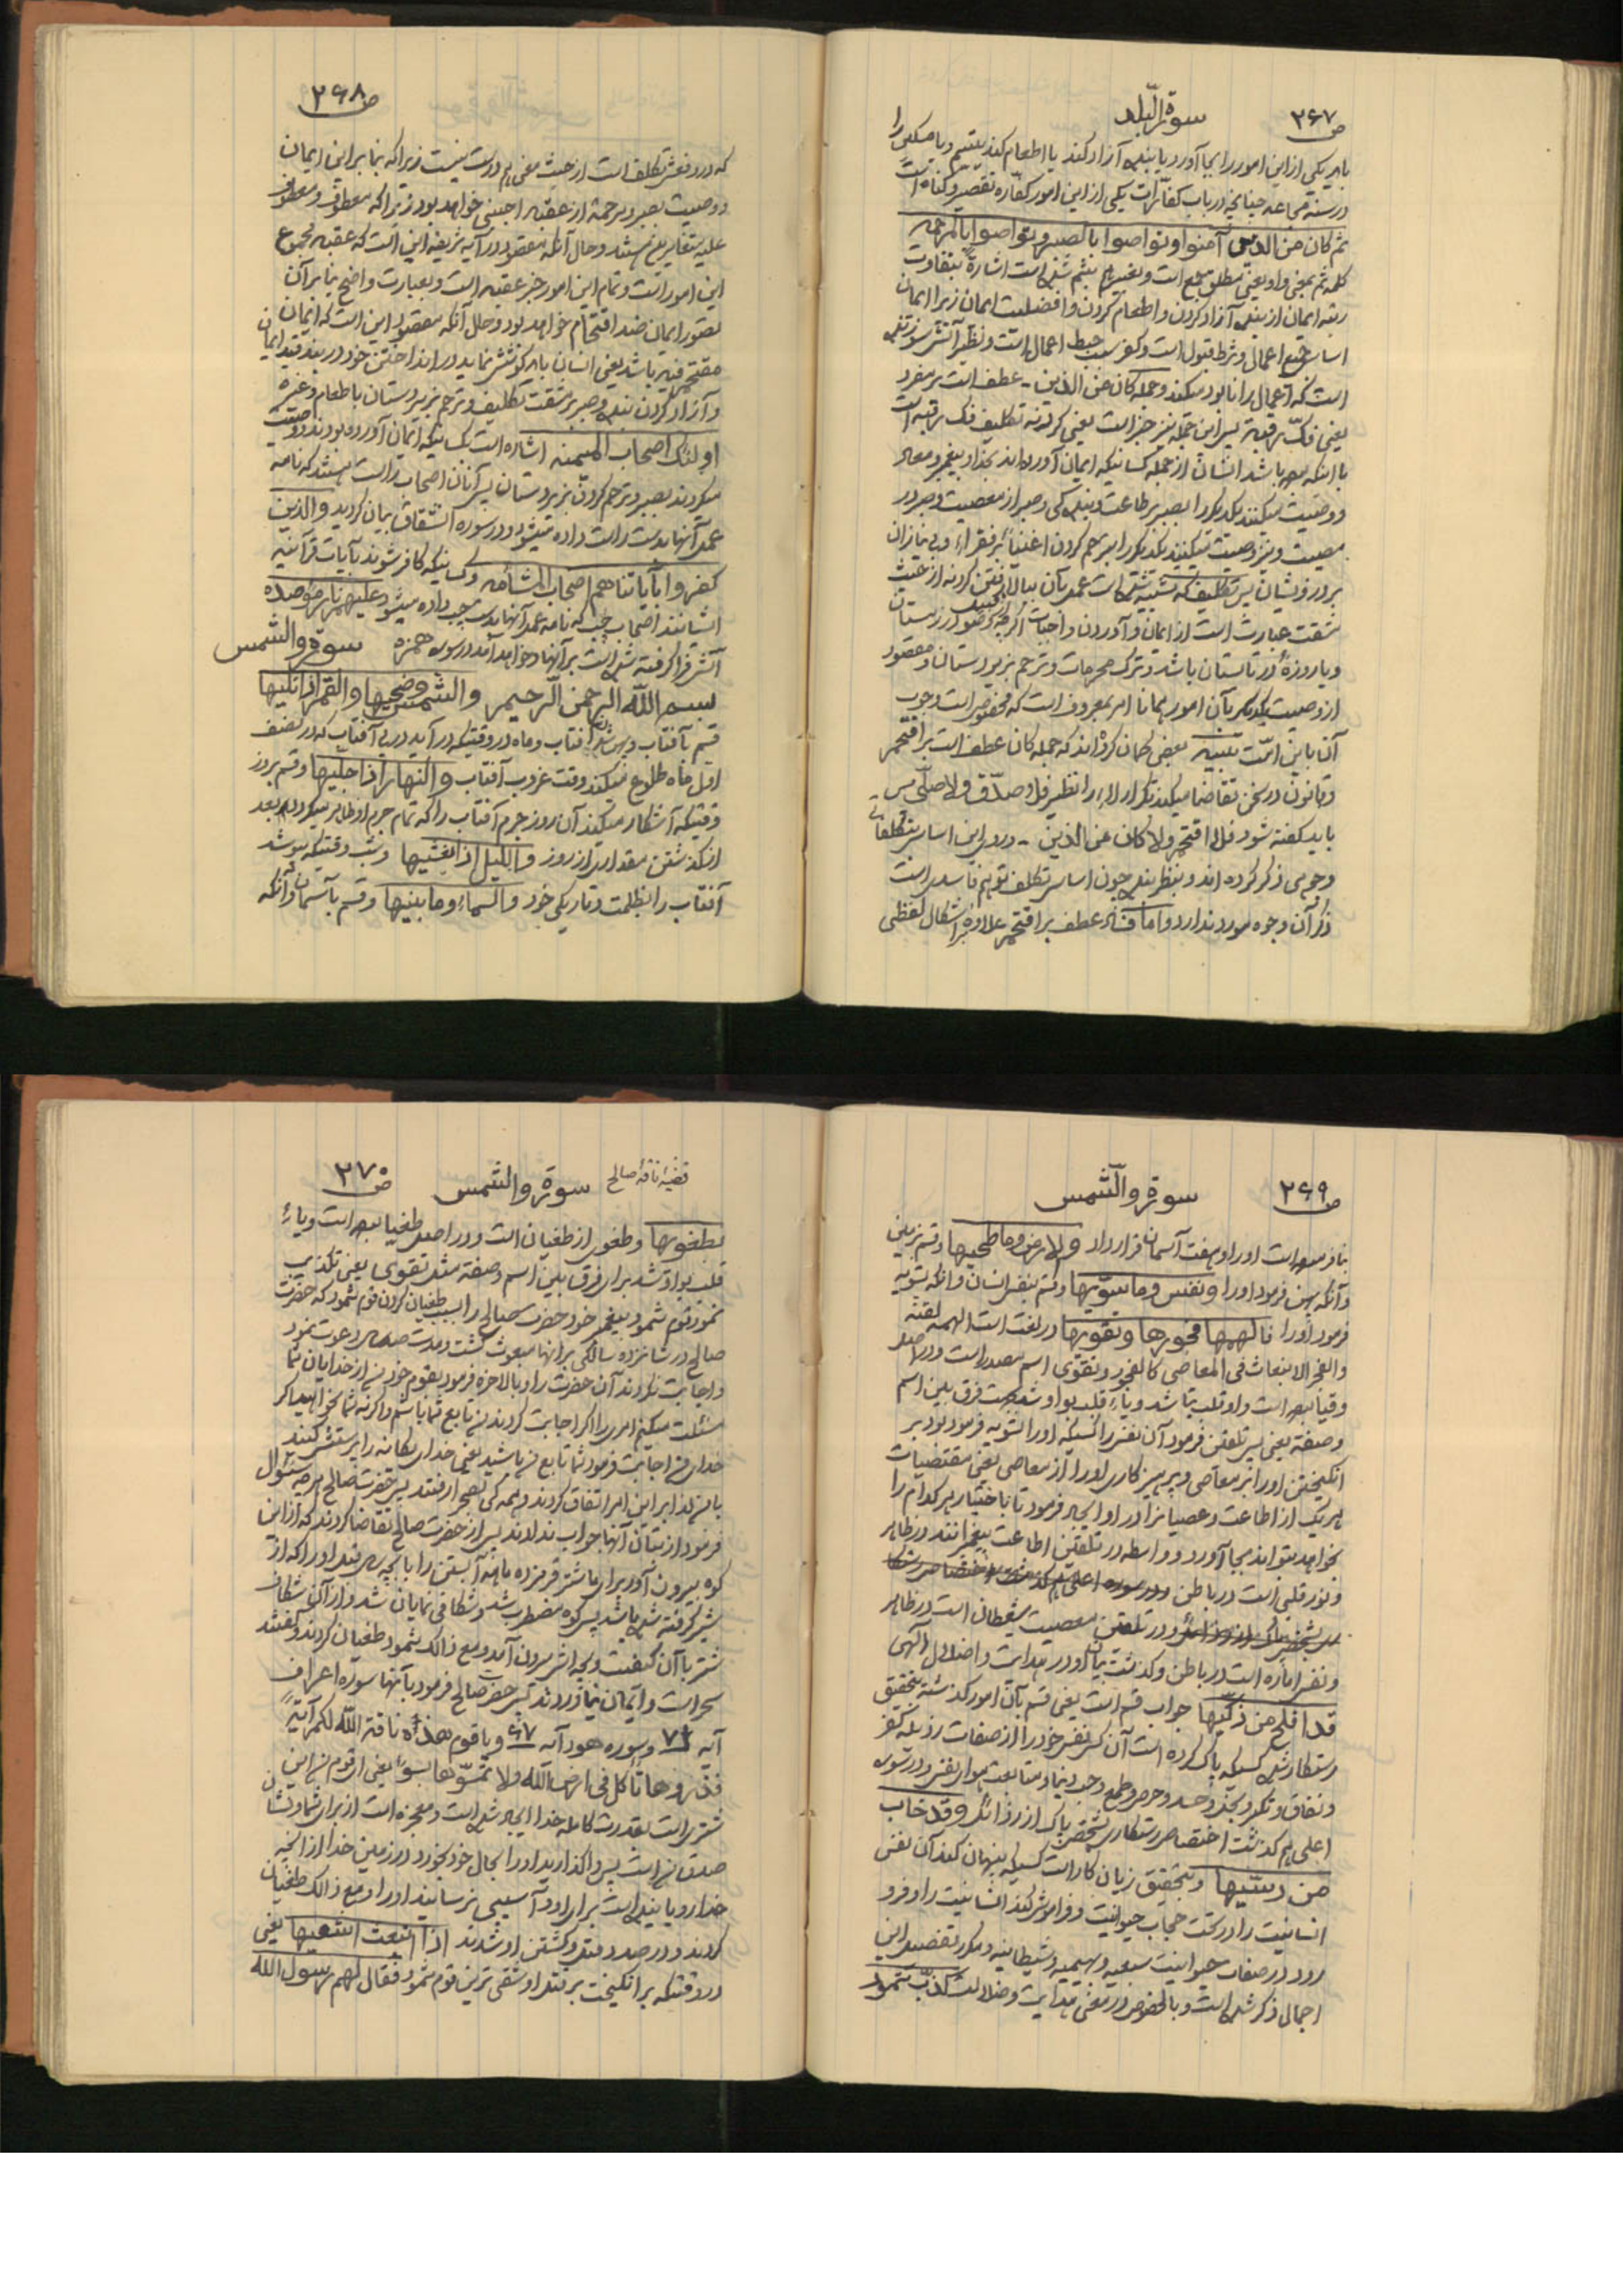 ص ۲۶۷
سورة البلد
یا بهر یکی از این امور را بجا آورد یا بنده آزاد کند یا اطعام کند یتیم و یا مسکین را
در سنه مجاعه چنانچه در باب کفارات یکی از این امور کفاره تقصیر و گناه است
ثم کان من الذین آمنوا و تواصوا بالصبر و تواصوا بالمرحمه
کلمه ثم بمعنی واو یعنی مطلق جمع است و تعبیر بثم شده است اشارة بتفاوت
رتبه ایمان از بنده آزاد کردن و اطعام کردن و افضلیت ایمان زیرا ایمان
اساس جمیع اعمال و شرط قبول است و کفر سبب حبط اعمال است و نظیر آتش سوزنده
است که اعمال را نابود میکند و جمله کان من الذین - عطف است بر مفرد
یعنی فک رقبة پس این جمله نیز خبر است یعنی کردنه تکلیف فک رقبه است
با اینکه بوده باشد انسان از جمله کسانیکه ایمان آورده اند بخدا و پیغمبر و معاد
و وصیت میکنند یکدیگر را بصبر بر طاعت و بندگی و صبر از معصیت و صبر در
مصیبت و نیز وصیت میکنند یکدیگر را برحم کردن اغنیاء بر فقراء و بی نیازان
بر درویشان پس تکلیف که تشبیه شده است عمل بآن ببالا رفتن کردنه از حیث
مشقت عبارت است از ایمان و آوردن واجبات اگر چه وضو در زمستان
و یا روزه در تابستان باشد و ترک محرمات و ترحم بزیردستان و مقصود
از وصیت یکدیگر بآن امور همانا امر بمعروف است که مخصوص است وجوب
آن باین امت تنبیه بعضی گمان کرده اند که جمله کان عطف است بر اقتحم
و قانون در سخن تقاضا میکند تکرار لاء را نظیر فلا صدق و لا صلی پس
باید گفته شود فلا اقتحم و لا کان من الذین - در رد این اساس تکلفاتی
وجوهی ذکر کرده اند و بنظر بنده چون اساس تکلف توهم فاسد است
ذکر آن وجوه مورد ندارد و اما فساد عطف بر اقتحم علاوه بر اشکال لفظی
ص ۲۶۸
که در دفعش تکلف است از حیث معنی هم درست نیست زیرا که بنا بر این ایمان
و وصیت بصبر و مرحمة از عقبه اجنبی خواهد بود زیرا که معطوف و معطوف
علیه متغایرین هستند و حال آنکه مقصود در آیه شریفه این است که عقبه مجموع
این امور است و تمام این امور جزء عقبه است و بعبارت واضح بنا بر آن
تصور ایمان ضد اقتحام خواهد بود و حال آنکه مقصود این است که ایمان
مقتحم فیه باشد یعنی انسان باید کوشش نماید در انداختن خود در بند قید ایمان
و آزاد کردن بنده و صبر بر مشقت تکالیف و ترحم بزیردستان باطعام و غیره
اولئک اصحاب المیمنه اشاره است بکسانیکه ایمان آورده بودند و وصیت
میکردند بصبر و ترحم کردن بزیردستان پس آنان اصحاب راست هستند که نامه
عمل آنها بدست راست داده میشود و در سوره انشقاق بیان گردید و الذین
کفروا بآیاتنا هم اصحاب المشأمه و کسانیکه کافر شوند بآیات قرآنیه
ایشانند اصحاب چپ که نامه عمل آنها بدست چپ داده میشود علیهم نار مؤصده
آتش فرا گرفته شده است بر آنها و خواهد آمد در سوره همزه سورة والشمس
بسم الله الرحمن الرحیم والشمس وضحیها والقمر اذا تلیها
قسم بآفتاب و بنور آفتاب و ماه در وقتیکه در آید در پی آفتاب که در نصف
اول ماه طلوع میکند وقت غروب آفتاب والنهار اذا جلیها و قسم بروز
وقتیکه آشکار میکند آن روز جرم آفتاب را که تمام جرم او ظاهر میگردد بعد
از گذشتن مقداری از روز واللیل اذا یغشیها و شب وقتیکه بپوشد
آفتاب را بظلمت و تاریکی خود والسماء وما بنیها و قسم بآسمان و آنکه
ص ۲۶۹
سورة والشمس
بنا فرموده است او را و هفت آسمان قرار داد والارض وما طحیها و قسم بزمین
و آنکه پهن فرمود او را و نفس وما سویها و قسم بنفس انسان و آنکه تسویه
فرمود او را فالهمها فجورها و تقویها در لغت است الهمه لقنه
والفجر الانبعاث فی المعاصی کالفجور و تقوی اسم مصدر است و در اصل
وقیا بوده است واو قلب بتا شد و یاء قلب بواو شد جهت فرق بین اسم
و صفة یعنی پس تلقین فرمود آن نفس را کسیکه او را تسویه فرموده بود بر
انگیختن او را بر معاصی و پرهیزکاری او را از معاصی یعنی مقتضیات
هر یک از اطاعت و عصیان را در او ایجاد فرمود تا باختیار هر کدام را
بخواهد بتواند بجا آورد و واسطه در تلقین اطاعت پیغمبرانند در ظاهر
و نور قلبی است در باطن
و در تلقین معصیت شیطان است در ظاهر
و نفس اماره است در باطن و گذشت بیان او در هدایت و اضلال الهی
قد افلح من زکیها جواب قسم است یعنی قسم بآن امور گذشته بتحقیق
رستگار شده کسیکه پاک کرده است آن کس نفس خود را از صفات رذیله کفر
و نفاق و تکبر و بخل و حسد و حرص و طمع و حب دنیا و متابعت هوای نفس و در سوره
اعلی هم گذشت اختصاص رستگاری بشخص پاک از رذائل و قد خاب
من دسیها و بتحقیق زیان کار است کسیکه پنهان کند آن نفس
انسانیت را در تحت حجاب حیوانیت و فراموش کند انسانیت را و فرو
رود در صفات حیوانیت سبعیه و بهیمیه و شیطانیه و مکرر تفصیل این
اجمال ذکر شده است و بالخصوص در معنی هدایت و ضلالت کذبت ثمود
ص ۲۷۰
سورة والشمس
قضیه ناقه صالح
بطغویها و طغوی از طغیان است و در اصل طغیا بوده است و یاء
قلب بواو شد برای فرق بین اسم و صفة مثل تقوی یعنی تکذیب
نمود قوم ثمود پیغمبر خود حضرت صالح را بسبب طغیان کردن قوم ثمود که حضرت
صالح در شانزده سالگی بر آنها مبعوث گشت و مدت صد سال دعوت نمود
و اجابت نکردند آن حضرت را و بالاخره فرمود بقوم خود من از خدایان شما
مسئلت میکنم امری را اگر اجابت کردند من تابع شما باشم و اگر نه شما بخواهید اگر
خدای من اجابت فرمود شما تابع من باشید یعنی خدای یگانه را پرستش کنید
با من لذا بر این امر اتفاق کردند و همه گی بصحرا رفتند پس حضرت صالح هر چه سئوال
فرمود از بتان آنها جواب ندادند پس از حضرت صالح تقاضا کردند که از این
کوه بیرون آور برای ما شتر قرمز ده ماهه آبستن را با بچه او که از
شیر گرفته شده باشد پس کوه مضطرب شد و شکافی نمایان شد و از آن شکاف
شتر با آن کیفیت و بچه اش بیرون آمد و مع ذالک ثمود طغیان کردند و گفتند
سحر است و ایمان نیاوردند پس حضرت صالح فرمود بآنها سوره اعراف
آیه ۷۳ و سوره هود آیه ۶۷ و یا قوم هذه ناقة الله لکم آیة
فذروها تأکل فی ارض الله ولا تمسوها بسوء یعنی ای قوم من این
شتری است بقدرت کامله خدا ایجاد شده است و معجزه است از برای شما و نشان
صدق من است پس واگذارید او را بحال خود بخورد در زمین خدا از آنچه
خدا رویانیده است برای او و آسیبی نرسانید او را و مع ذالک طغیان
کردند و در صدد قتل و کشتن او شدند اذ انبعث اشقیها یعنی
در وقتیکه برانگیخت بر قتل او شقی ترین قوم ثمود فقال لهم رسول الله